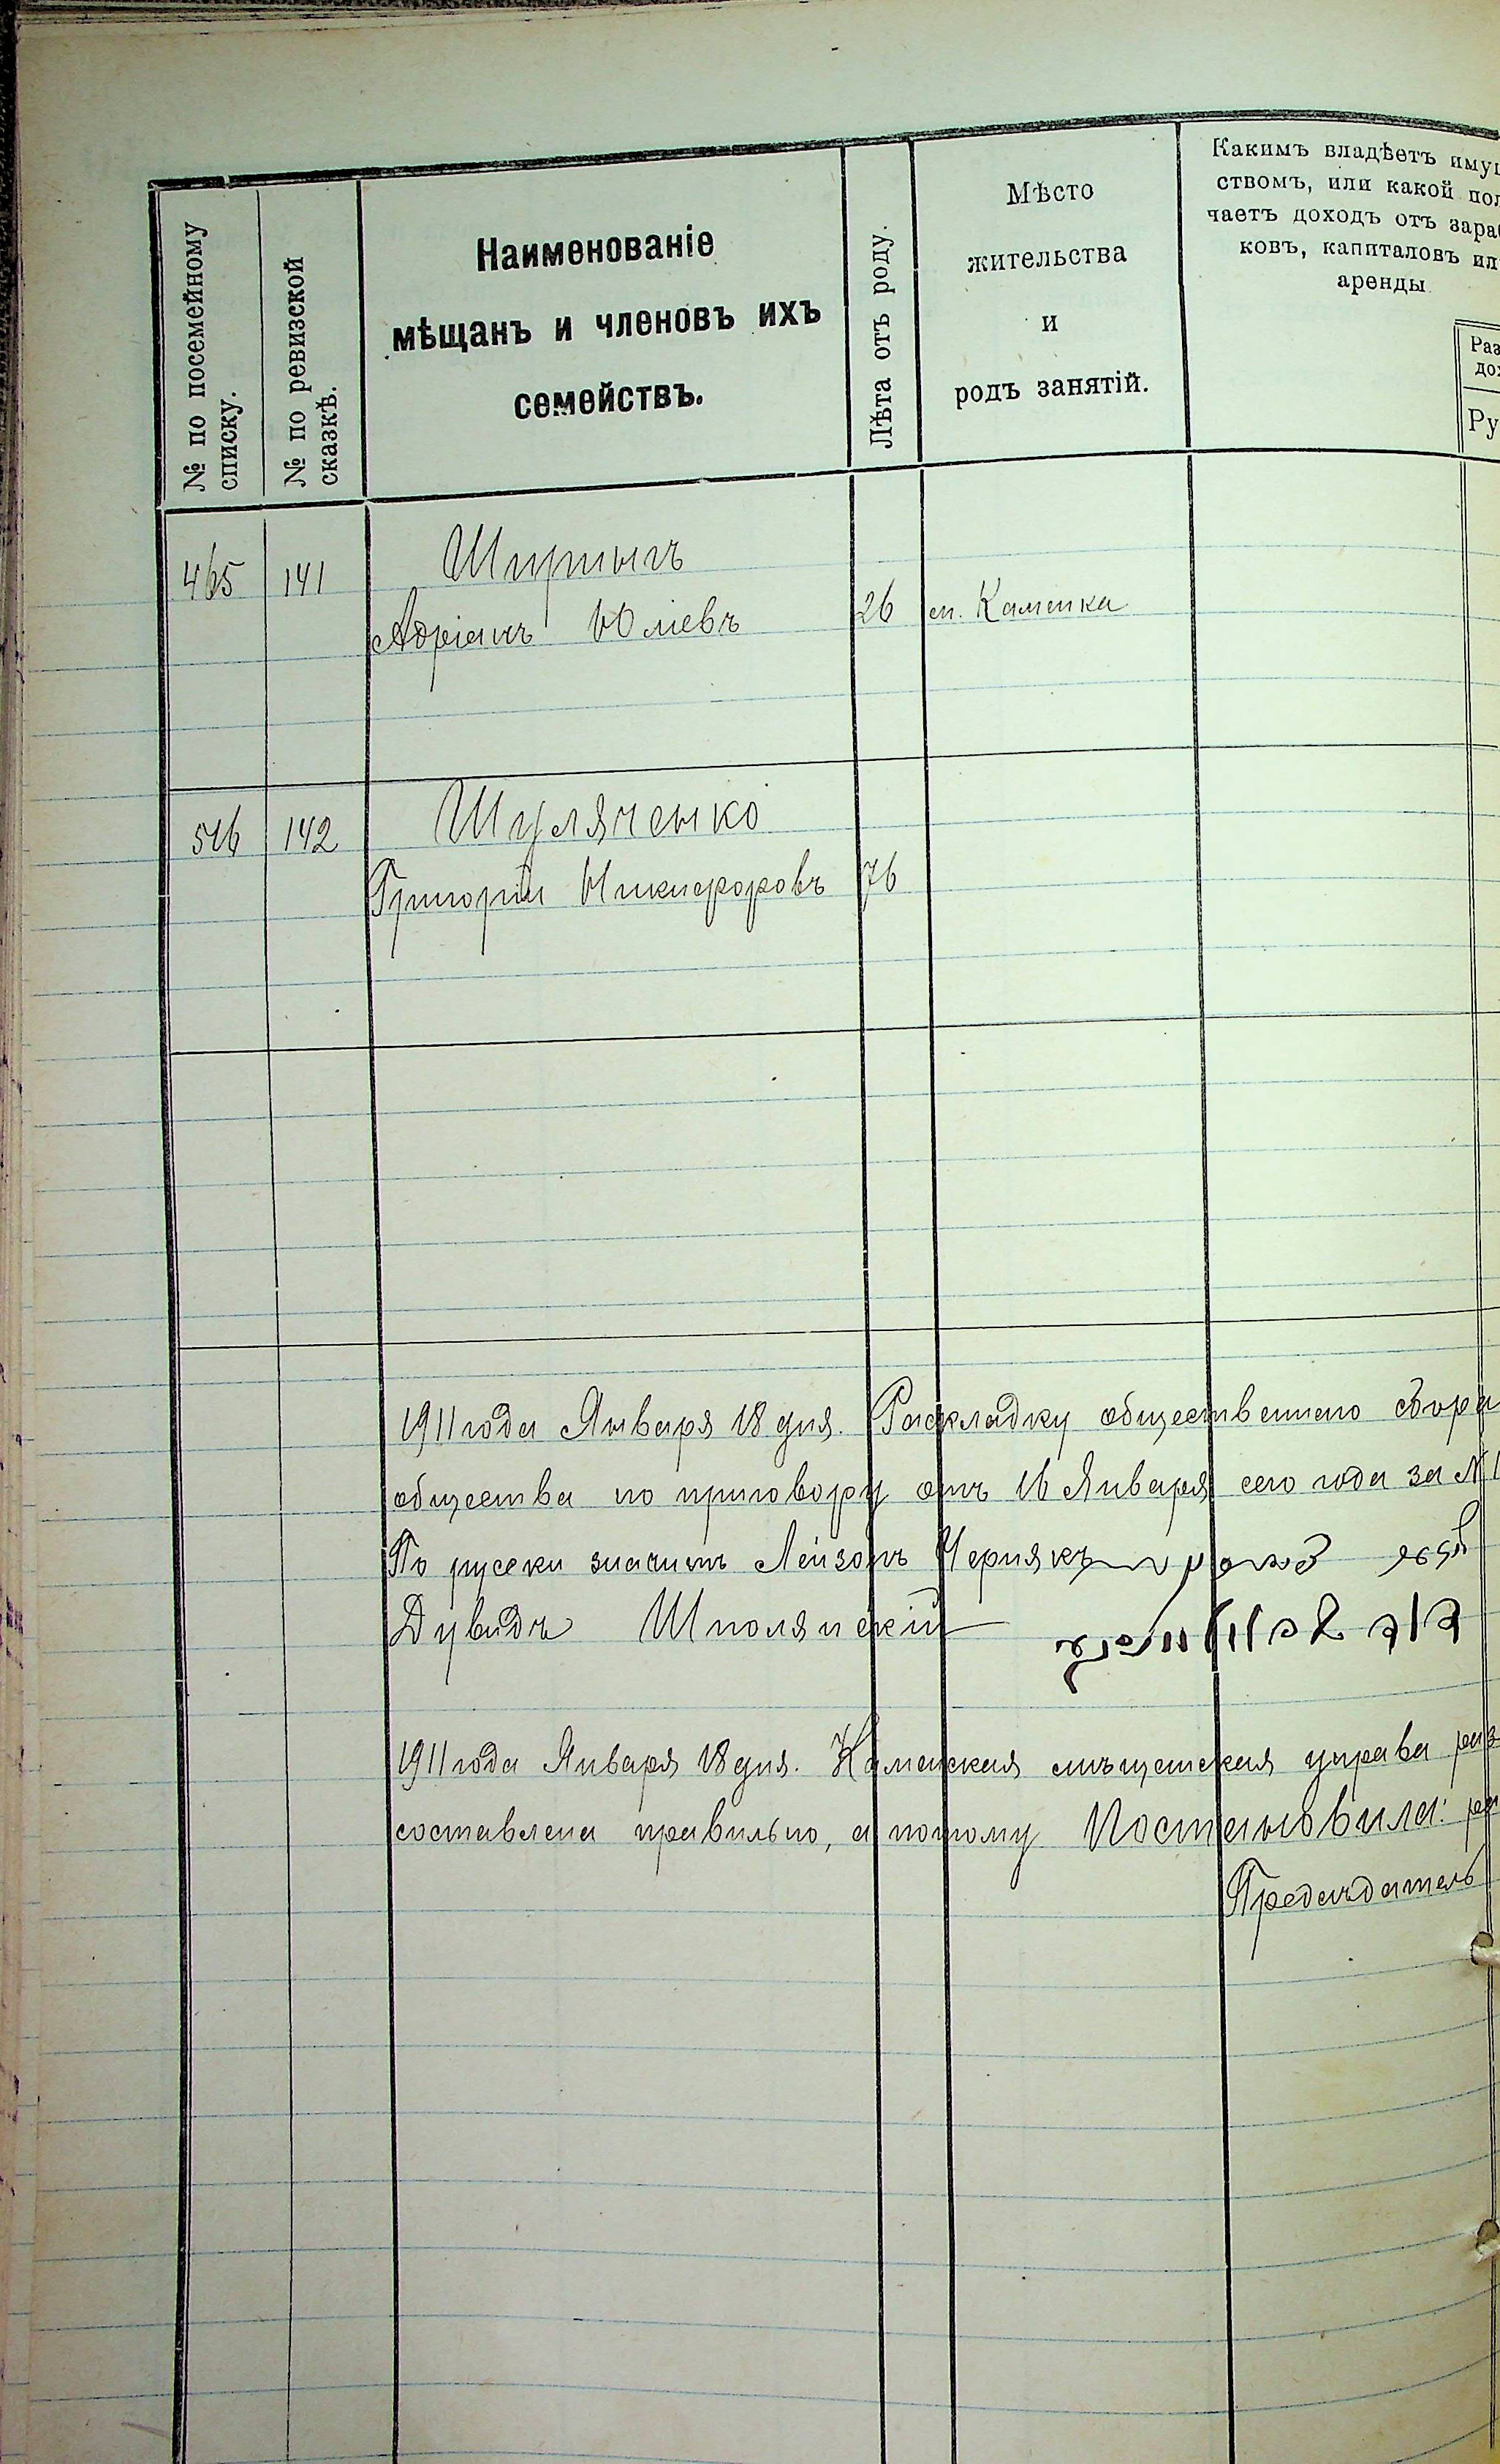 № по посемейному
списку.
№ по ревизской
сказкѣ.
Наименованіе
мѣщанъ и членовъ ихъ
семействъ.
Лѣта отъ роду.
Мѣсто
жительства
и
родъ занятій.
Какимъ владѣетъ имущ
ствомъ, или какой пол
чаетъ доходъ отъ зараб
ковъ, капиталовъ ил
аренды
Раз
дох
Ру
465 141
Адріанъ 26 м. Каменка
546 142 Шуляченко
Григорій Никифоровъ 76
1911 года Января 18 дня. Раскладку общественнаго сбора
общества по приговору отъ 16 Января сего года за №1
По русски значитъ Лейзоръ Чернякъ
Дувидъ Шполянскій
1911 года Января 18 дня. Каменская мѣщанская управа раз
составлена правильно, а потому Постановила: ра
Предсѣдатель